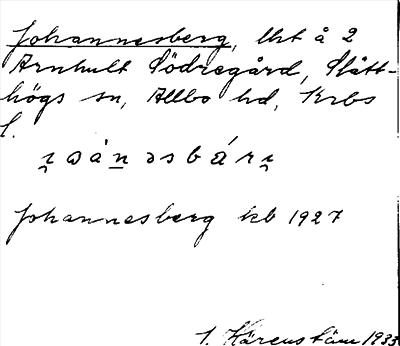 Johannesberg, lht å 2
Arnhult Södregård, Slätt-
högs sn, Allbo hd, Krbs
l.
Johannesberg kb 1927
J. Kärenstäm 1933